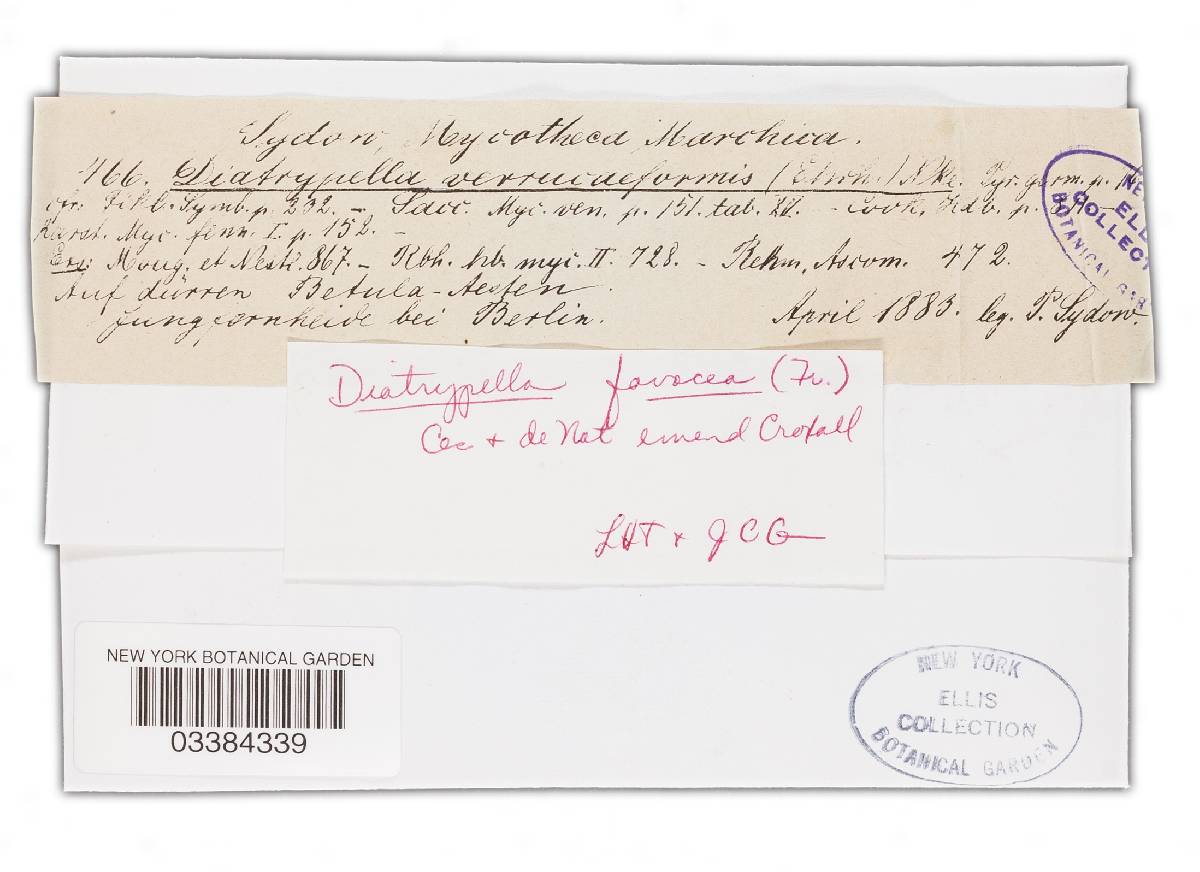 Sydow, Mycotheca Marchica.
466. Diatrypella verrucaeformis (Ehrh.) Nke. Pyr. germ. p.
cfr. Fckl. Symb. p. 232. – Sacc. Myc. ven. p. 151. tab. – Cook, Hdb. p.
Karst. Myc. fenn. I. p. 152. –
Exs: Moug. et Nestl. 867. – Rbh. hb. myc. II. 728. – Rehm, Ascom. 472.
Auf dürren Betula-Aesten.
Jungfernheide bei Berlin. April 1883. leg. P. Sydow.
NE
ELL
COLLECT
BOTANICAL GAR
Diatrypella favacea (Fr.)
Ces & de Not emend Croxall
LHT & JCG
NEW YORK BOTANICAL GARDEN
03384339
NEW YORK
ELLIS
COLLECTION
BOTANICAL GARDEN